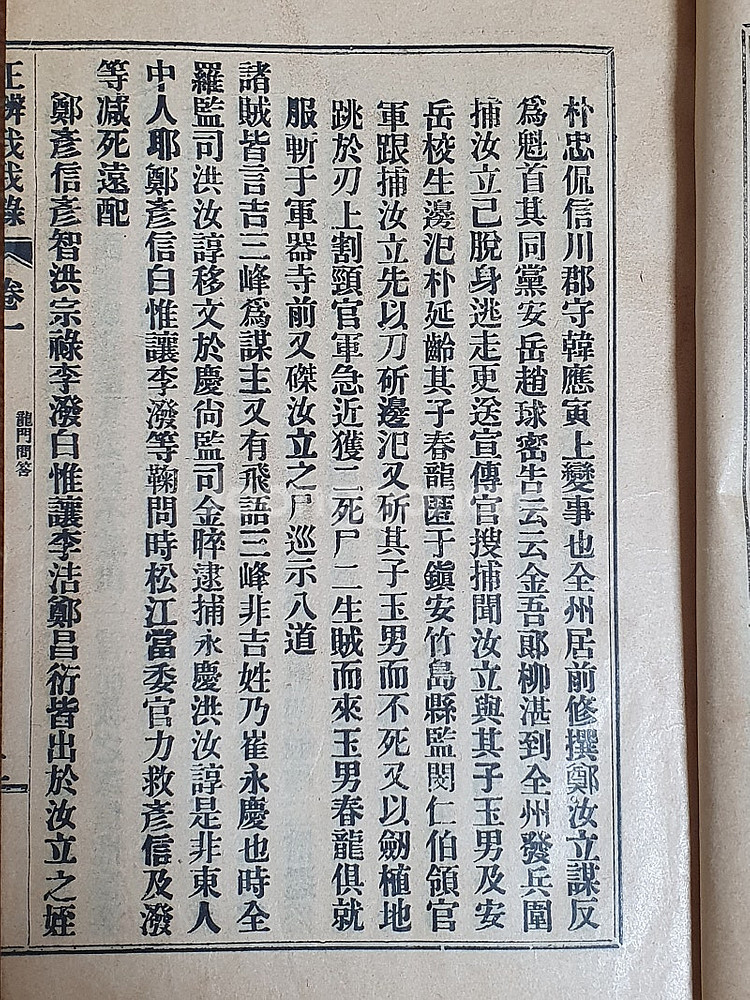 朴忠侃信川郡守韓應寅上變事也全州居前修撰鄭汝立謀反
爲魁首其同黨安岳趙球密告云云金吾郞柳湛到全州發兵圍
捕汝立已脫身逃走更送宣傳官搜捕聞汝立與其子玉男及安
岳校生邊汜朴延齡其子春龍匿于鎭安竹島縣監閔仁伯領官
軍跟捕汝立先以刀斫邊汜又斫其子玉男而不死又以劒植地
跳於刃上割頸官軍急近獲二死尸二生賊而來玉男春龍俱就
服斬于軍器寺前又磔汝立之尸巡示八道
諸賊皆言吉三峰爲謀主又有飛語三峰非吉姓乃崔永慶也時全
羅監司洪汝諄移文於慶尙監司金睟逮捕永慶洪汝諄是非東人
中人耶鄭彥信白惟讓李潑等鞠問時松江當委官力救彥信及潑
等减死遠配
鄭彥信彥智洪宗祿李潑白惟讓李洁鄭昌衍皆出於汝立之姪
辨 錄 卷一
龍門問答